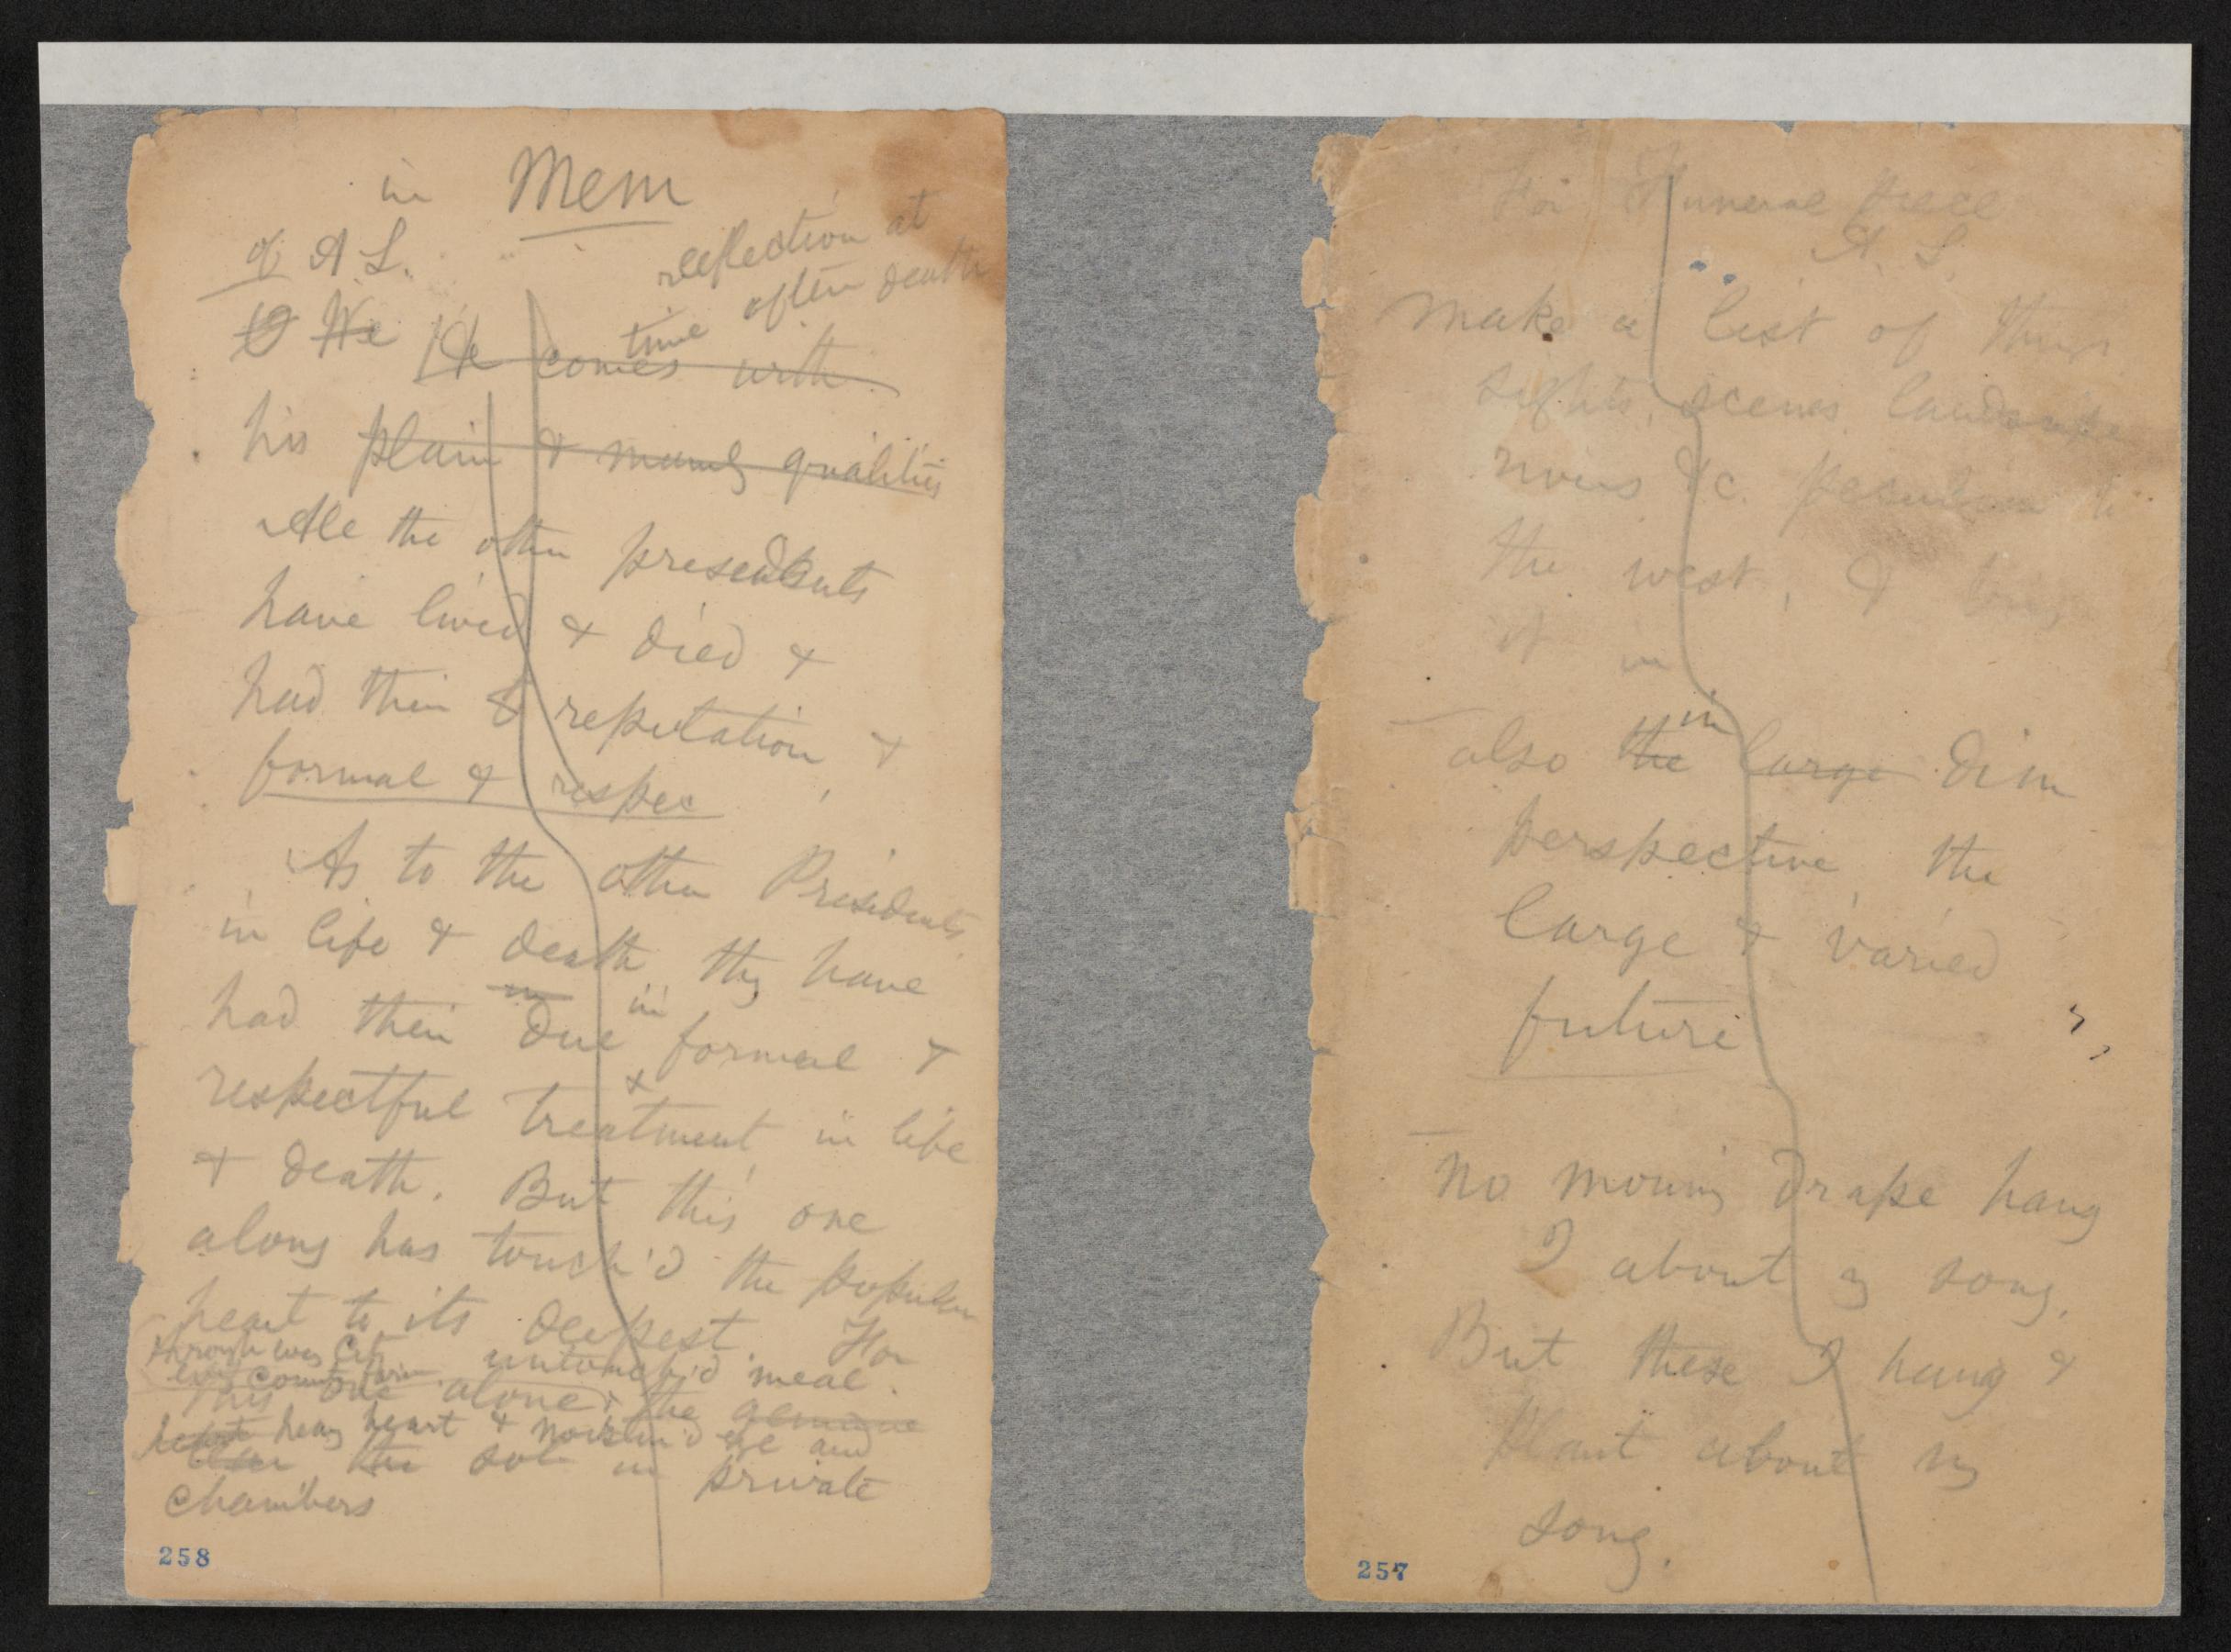 in Mem
of A L.
reflection at
time after death
O We He comes with
his plain & manly qualities
All the other presidents
have lived & died &
had their & reputation, &
formal & respec
As to the other Presidents
in life & death, they have
in
had their due formal &
&
respectful treatment in life
& death. But this one
along has touch'd the popular
heart to its deepest. For
through every City
every country farm untouch'd meal.
This one alone, the genuine
heavy heart & moisten'd eye and
the in private
chambers
258
For Funeral piece
A. L.
make a list of things
sights, scenes landscape
rivers &c. peculiar to
the west, & bring
it in
in
also the large dim
perspective, the
large & varied
future
No mourng drape hang
I about my song,
But these I hang &
plant about my
song.
257